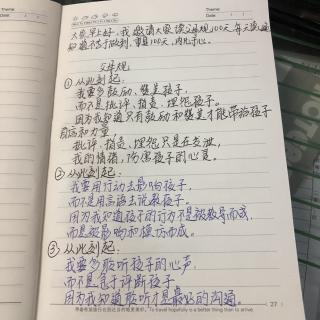 Theme:
Date:
大家早上好，我邀请大家读父母规100天，每天读
知道不等于做到，重复100天，内化于心。
父母规
①从此刻起：
我要多鼓励、赞美孩子，
而不是批评、指责、埋怨孩子。
因为我知道只有鼓励和赞美才能带给孩子
自信和力量
批评、指责、埋怨只是在发泄
我的情绪，伤害孩子的心灵。
②从此刻起：
我要用行动去影响孩子，
而不是用言语去说教孩子，
因为我知道孩子的行为不是被教导而成，
而是被影响和模仿而成。
③从此刻起：
我要多聆听孩子的心声，
而不是急于评断孩子，
因为我知道聆听才是最好的沟通。
27
带着希望旅行比到达目的地更美好。To travel hopefully is a better thing than to arrive.